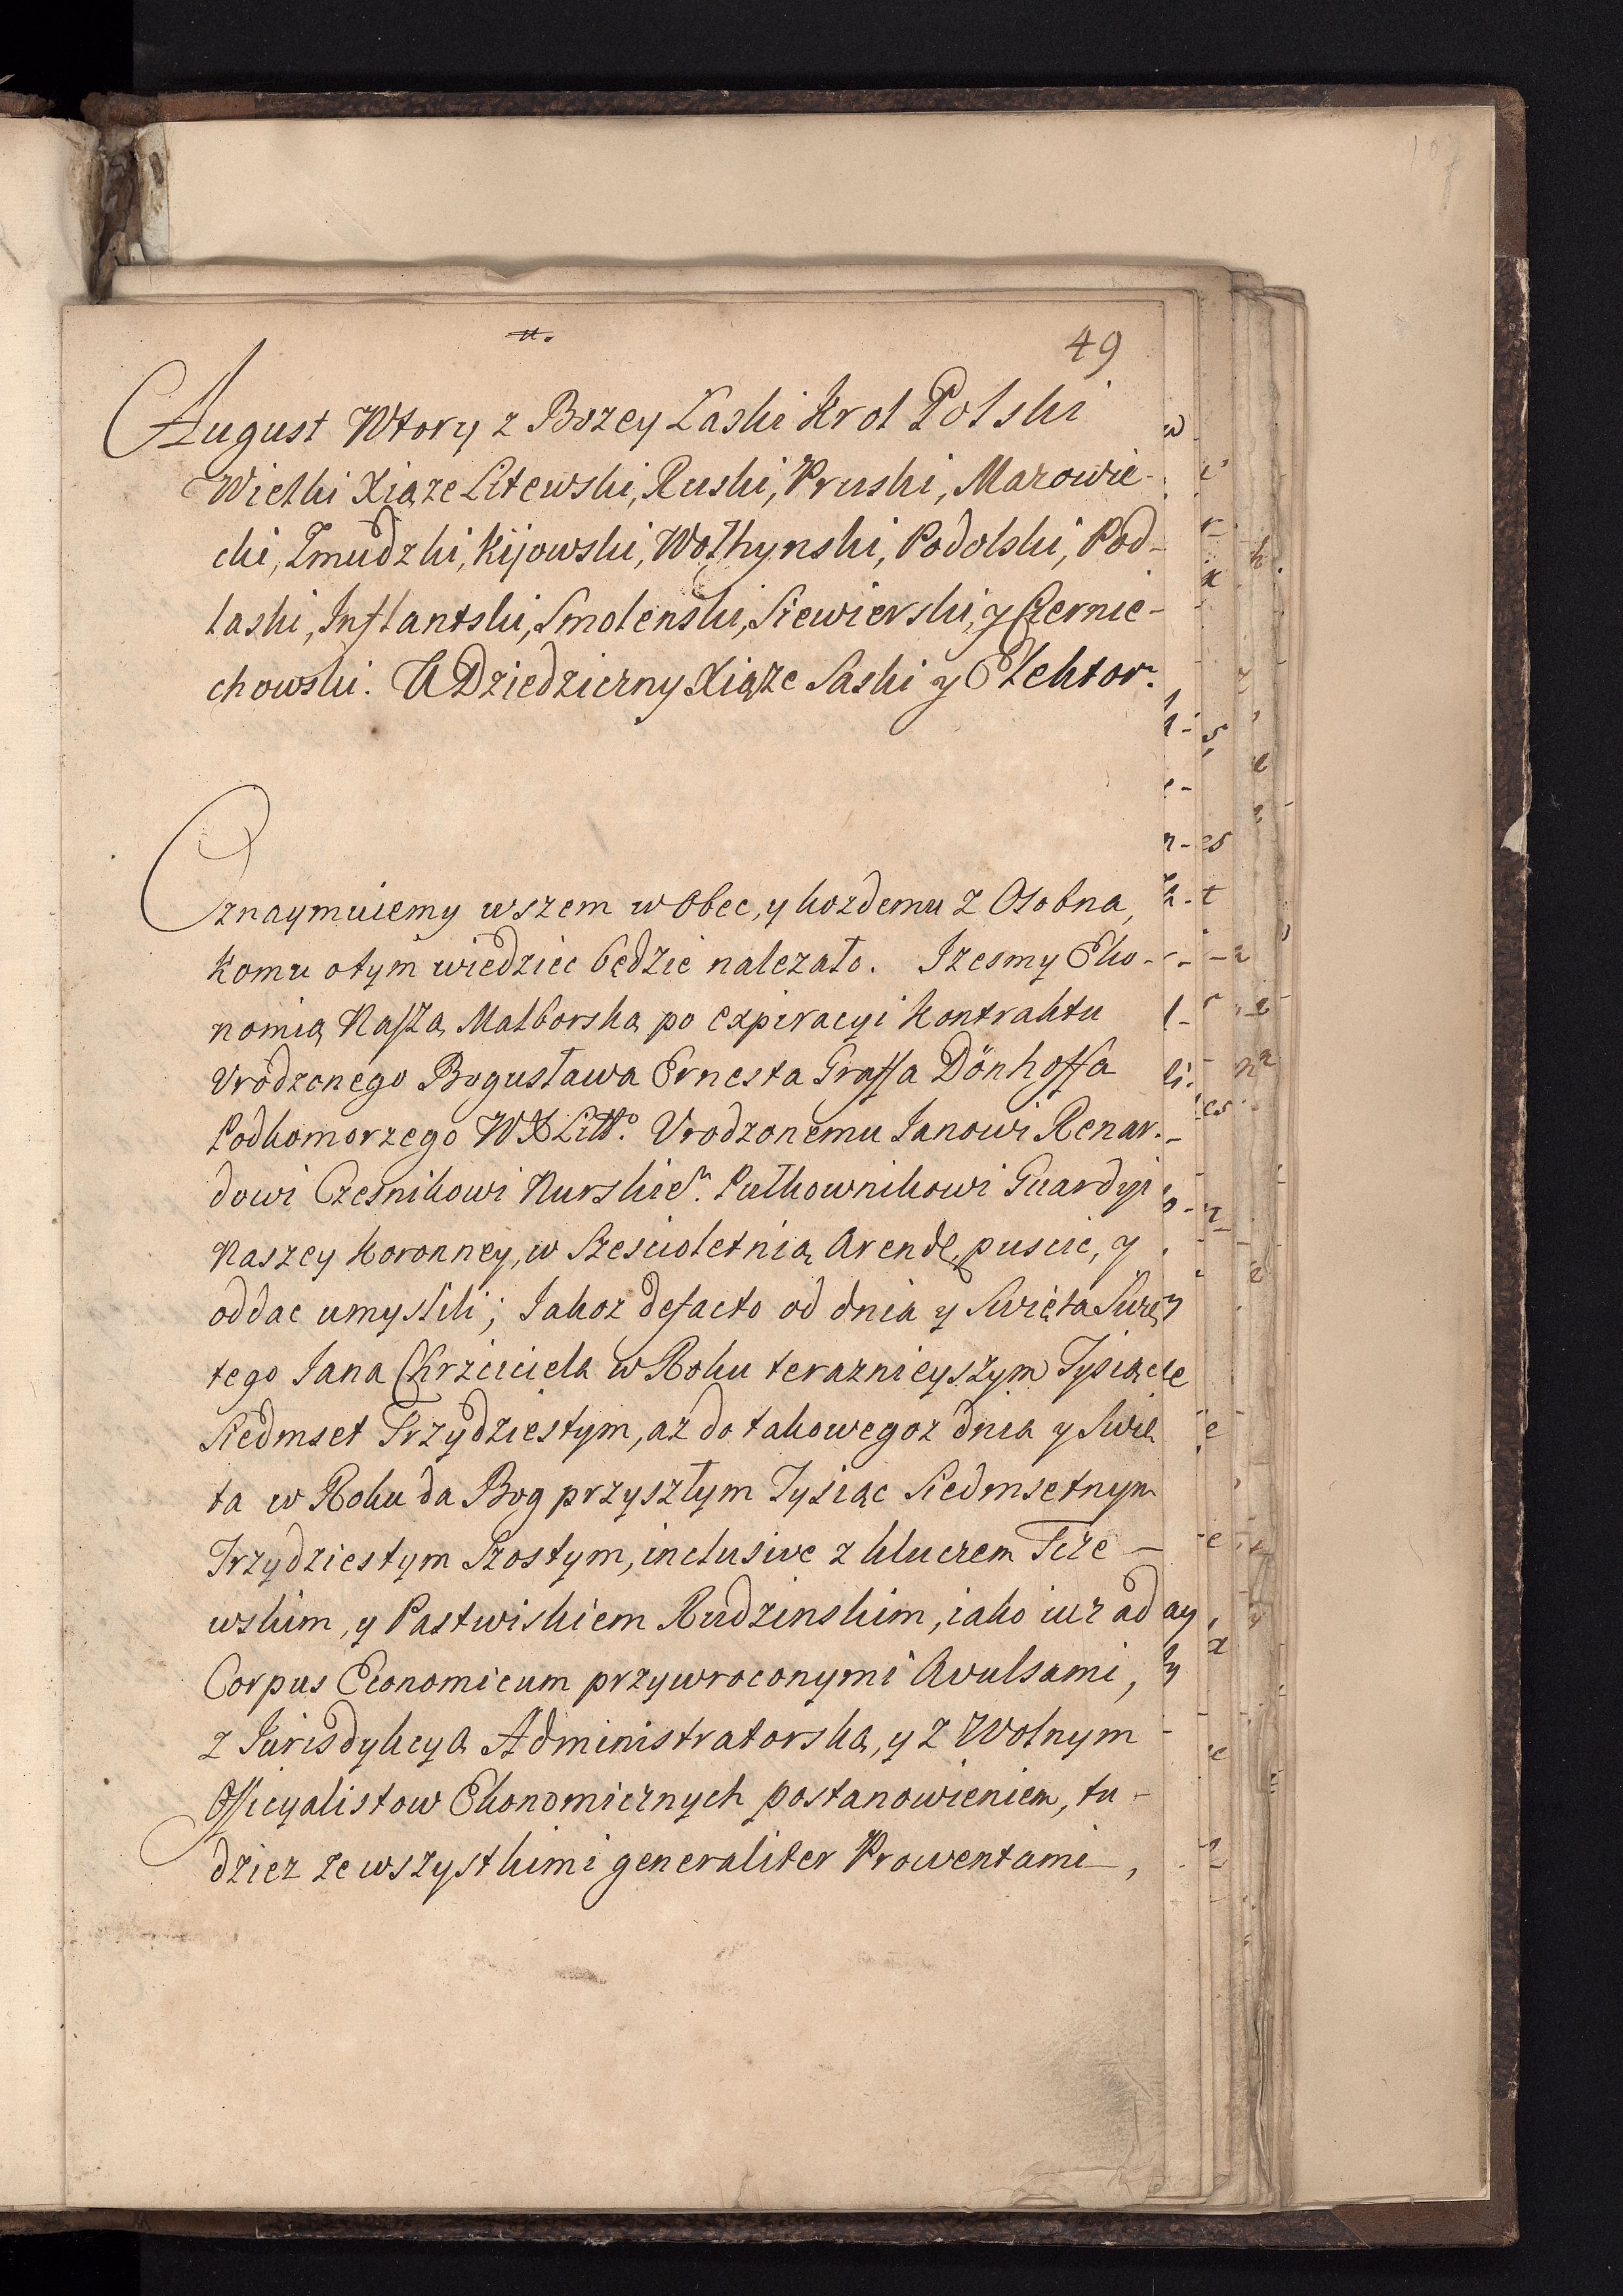 49
August Wtory z Bozey Łaski Krol Polski
Wielki Xiąze Litewski, Ruski, Pruski, Mazowie-
cki, Zmudzki, Kijowski, Wołhynski, Podolski, Pod-
laski, Inflantski, Smolenski, Siewierski, y Czernie-
chowski. A Dziedziczny Xiąze Saski y Elektor.
Oznaymuiemy wszem w Obec, y kozdemu z Osobna,
Komu otym wiedziec będzie nalezało. Izesmy Eko-
nomią Naszą Malborską po expiracyi Kontraktu
Vrodzonego Bogusława Ernesta Graffa Dönhoffa
Podkomorzego WXLitto. Vrodzonemu Ianowi Renar-
dowi Czesnikowi Nurskiem. Pułkownikowi Guardyi
Naszey Koronney, w Szescioletnią Arendę puscic, y
oddac umyslili; Iakoz defacto od dnia y Swięta Swię
tego Iana Chrzciciela w Roku teraznieyszym Tysiące
Siedmset Trzydziestym, az do takowegoz dnia y Swię
ta w Roku da Bog przyszłym Tysiąc Siedmsetnym
Trzydziestym Szostym, inclusive z kluczem Tcze-
wskim, y Pastwiskiem Rudzinskim, iako iuz ad
Corpus Economicum przywroconymi Avulsami,
z Iurisdykcyą Administratorską, y z Wolnym
Officyalistow Ekonomicznych postanowieniem, tu-
dziez ze wszystkimi generaliter Prowentami,